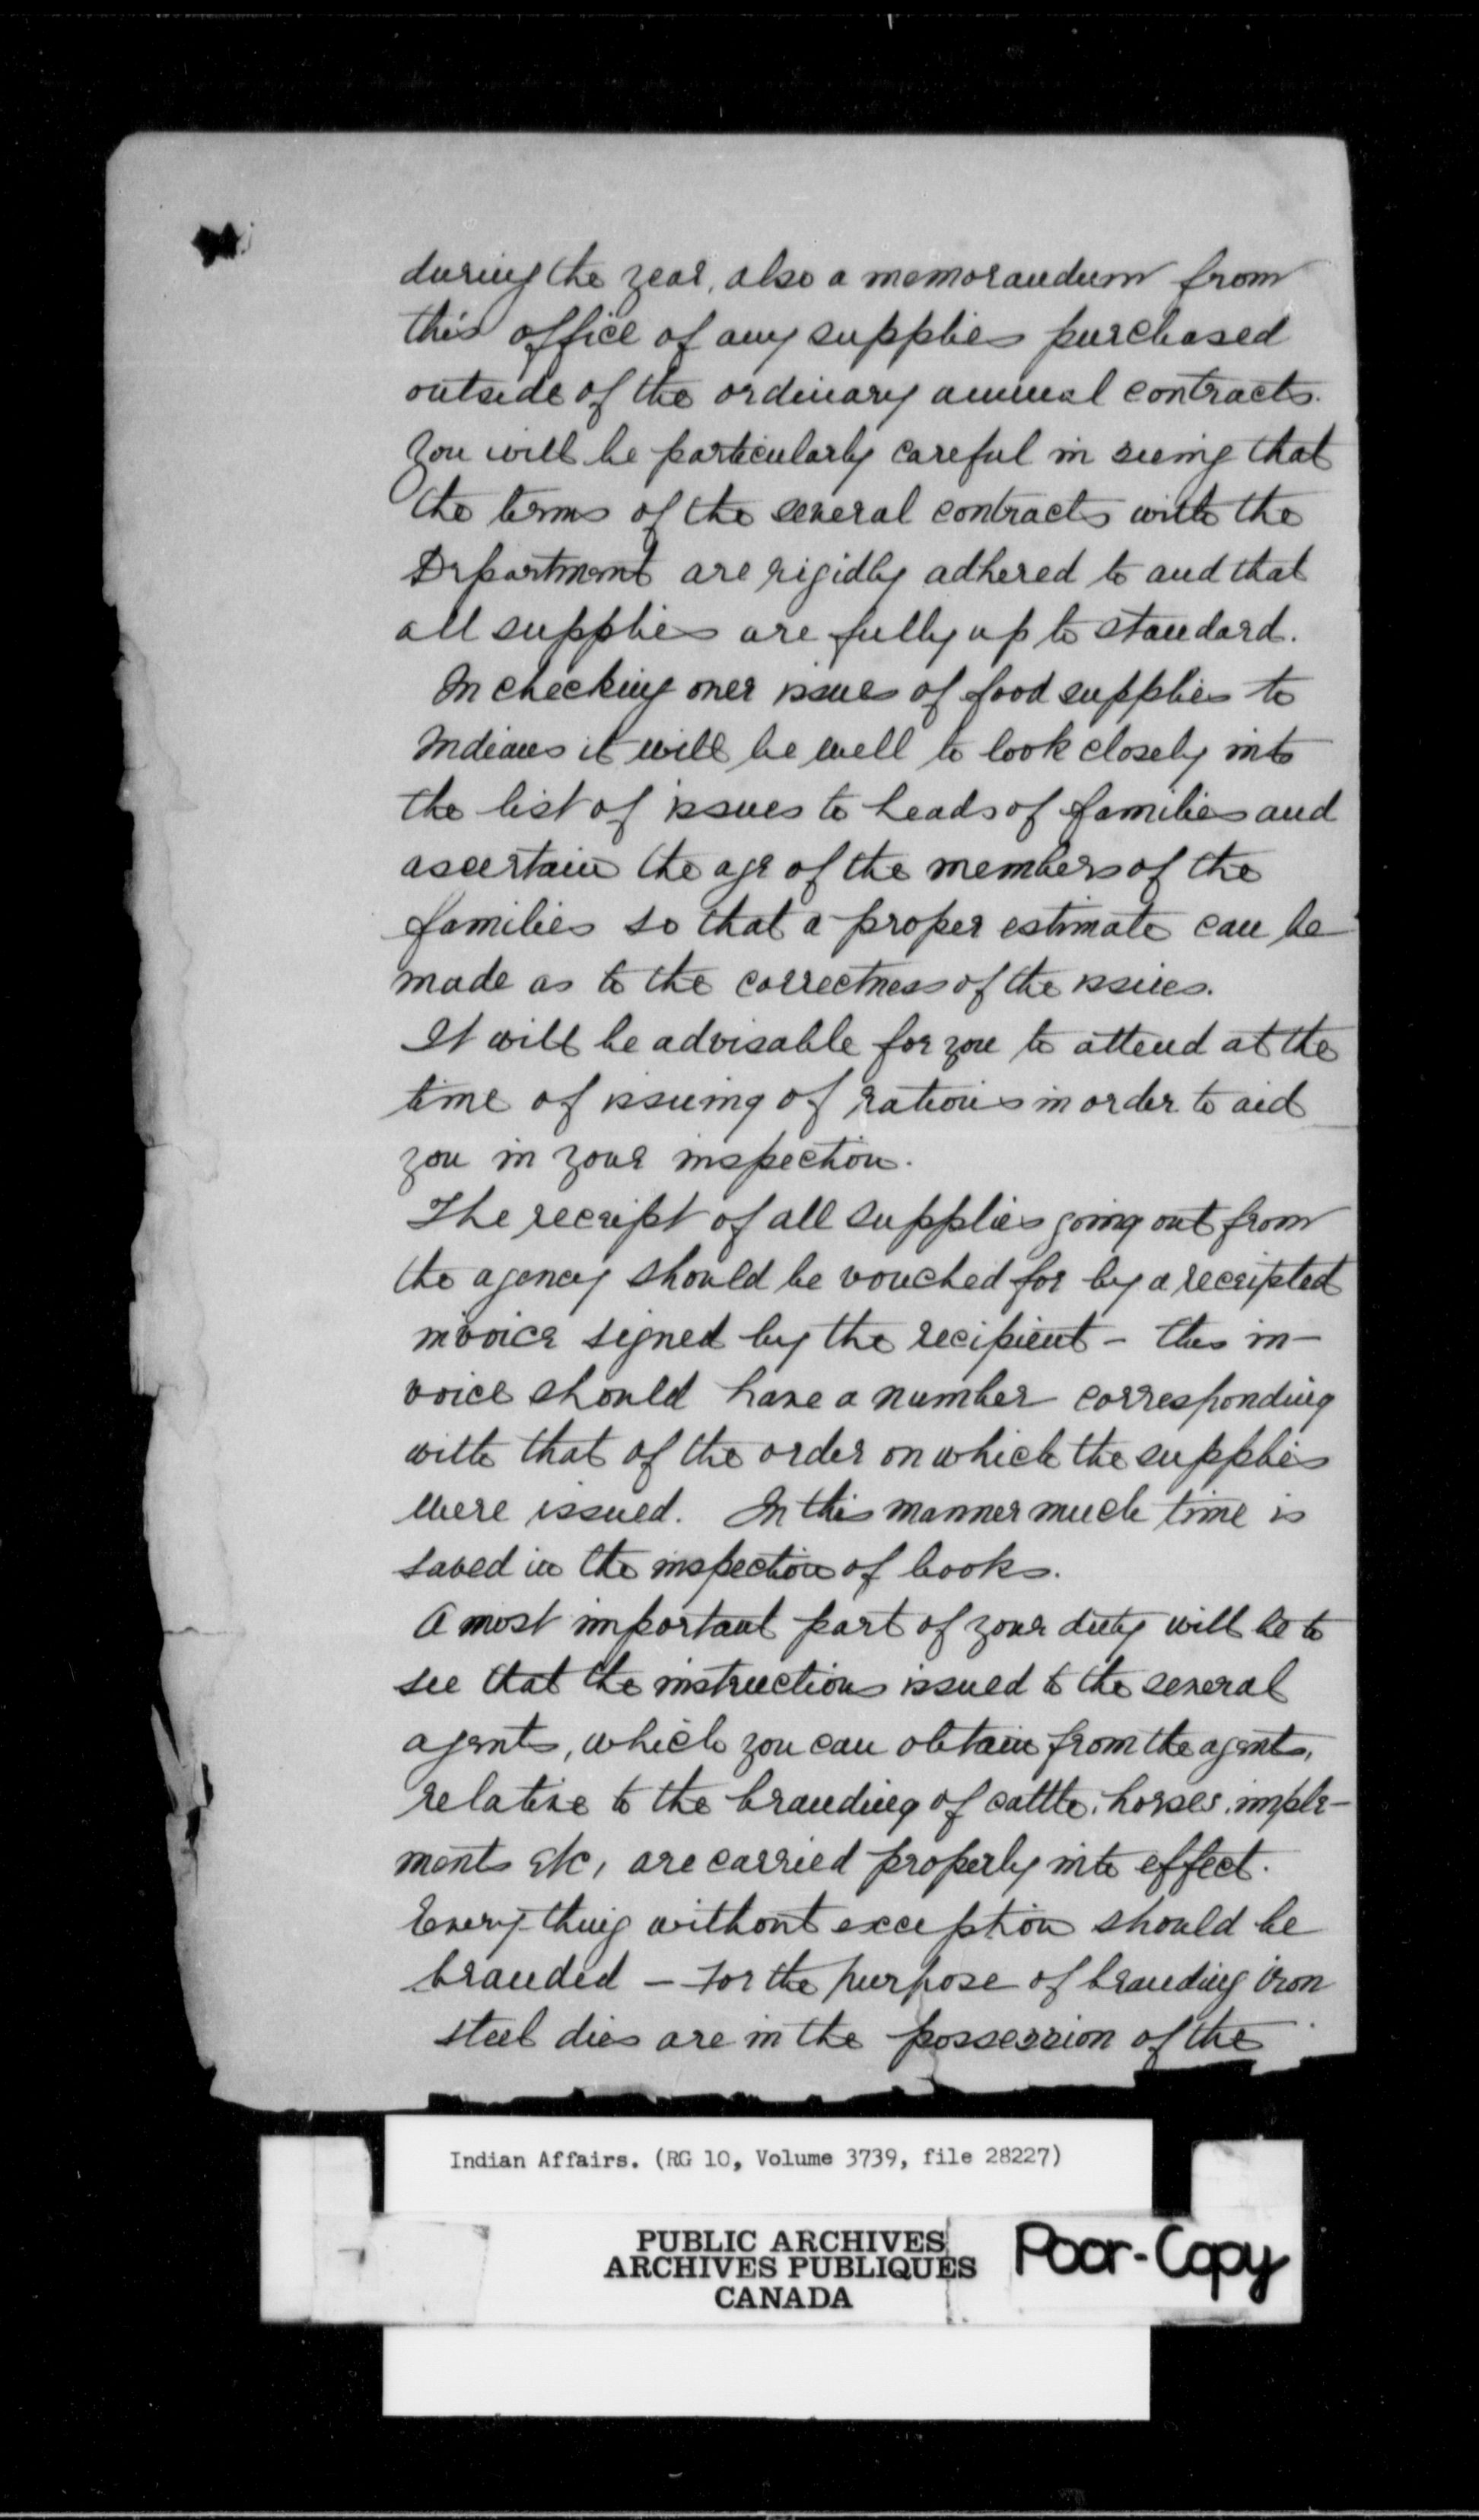 during the year, also a memorandum from
this office of any supplies purchased
outside of the ordinary annual contracts.
You will be particularly careful in seeing that
the terms of the several contracts with the
Department are rigidly adhered to and that
all supplies are fully up to standard.
In checking over issues of food supplies to
Indians it will be well to look closely into
the list of issues to heads of families and
ascertain the age of the members of the
families so that a proper estimate can be
made as to the correctness of the issues.
It will be advisable for you to attend at the
time of issuing of rations in order to aid
you in your inspection.
The receipt of all supplies going out from
the agency should be vouched for by a receipted
invoice signed by the recipient - this in-
voice should have a number corresponding
with that of the order on which the supplies
were issued. In this manner much time is
saved in the inspection of books.
A most important part of your duty will be to
see that the instructions issued to the several
agents, which you can obtain from the agents,
relative to the branding of cattle, horses, imple-
ments etc, are carried properly into effect.
Every-thing without exception should be
branded - for the purpose of branding iron
steel dies are in the possession of the
Indian Affairs. (RG 10, Volume 3739, file 28227)
PUBLIC ARCHIVES
ARCHIVES PUBLIQUES
CANADA
Poor-Copy